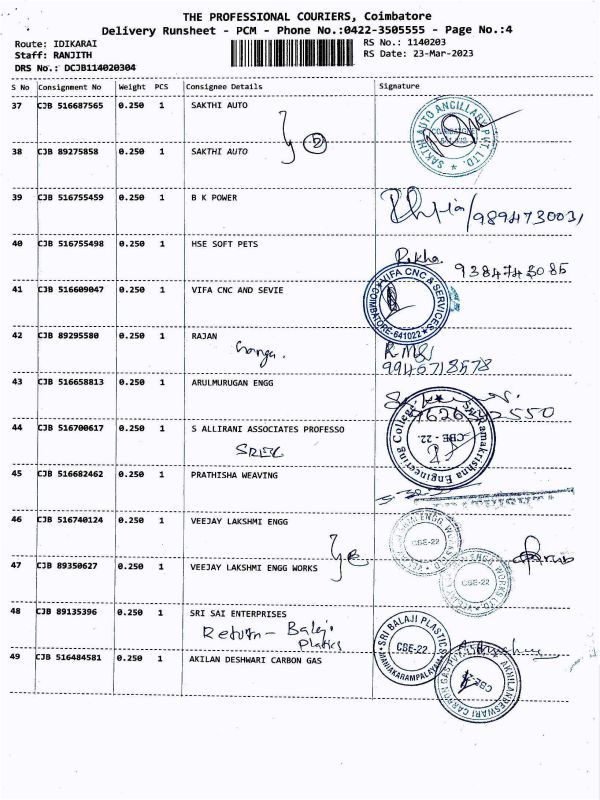 THE PROFESSIONAL COURIERS, Coimbatore
Delivery Runsheet - PCM - Phone No.:0422-3505555 - Page No.:4
Route: IDIKARAI
RS No.: 1140203
Staff: RANJITH
RS Date: 23-Mar-2023
DRS No.: DCJB114020304
S No Consignment No Weight PCS Consignee Details Signature
37 CJB 516687565 0.250 1 SAKTHI AUTO
SAKTHI AUTO ANCILLARY PVT. LTD.
38 CJB 89275858 0.250 1 SAKTHI AUTO
39 CJB 516755459 0.250 1 B K POWER
9894730031
40 CJB 516755498 0.250 1 HSE SOFT PETS
Rekha
9384743085
41 CJB 516609047 0.250 1 VIFA CNC AND SEVIE
VIFA CNC & SERVICES
COIMBATORE-641022
42 CJB 89295580 0.250 1 RAJAN
Ganga.
43 CJB 516658813 0.250 1 ARULMURUGAN ENGG
44 CJB 516700617 0.250 1 S ALLIRANI ASSOCIATES PROFESSO
SREC
Sri Ramakrishna Engineering College
CBE - 22.
45 CJB 516682462 0.250 1 PRATHISHA WEAVING
46 CJB 516740124 0.250 1 VEEJAY LAKSHMI ENGG
CBE-22
47 CJB 89350627 0.250 1 VEEJAY LAKSHMI ENGG WORKS
CBE-22
48 CJB 89135396 0.250 1 SRI SAI ENTERPRISES
Return - Balaji
Plastics
SRI BALAJI PLASTICS
CBE-22
MANIAKARAMPALAYAM
49 CJB 516484581 0.250 1 AKILAN DESHWARI CARBON GAS
AKHILANDESWARI CARBON GAS
CBE-22